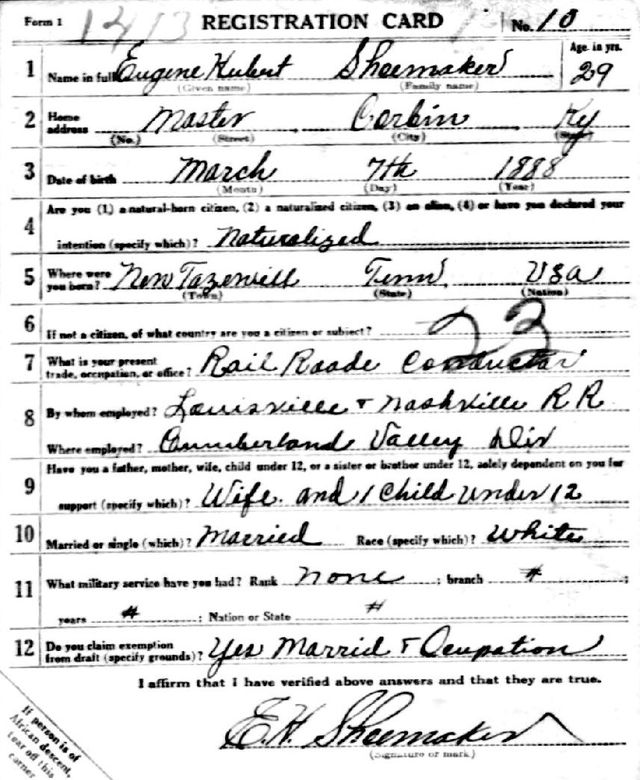 Form 1 1413 REGISTRATION CARD No. 10
1 Name in full Eugene Hubert Shoemaker Age, in yrs. 29
(Given name) (Family name)
2 Home address Master, Corbin Ky
(No.) (Street) (City) (State)
3 Date of birth March 7th 1888
(Month) (Day) (Year)
4 Are you (1) a natural-born citizen, (2) a naturalized citizen, (3) an alien, (4) or have you declared your
intention (specify which)? Naturalized
5 Where were you born? New Tazewell Tenn USA
(Town) (State) (Nation)
6 If not a citizen, of what country are you a citizen or subject? 23
7 What is your present trade, occupation, or office? Rail Roade Conductor
8 By whom employed? Louisville & Nashville R R
Where employed? Cumberland Valley Div
9 Have you a father, mother, wife, child under 12, or a sister or brother under 12, solely dependent on you for
support (specify which)? Wife and 1 Child under 12
10 Married or single (which)? Married Race (specify which)? White
11 What military service have you had? Rank none ; branch # ;
years # ; Nation or State #
12 Do you claim exemption from draft (specify grounds)? Yes Marrid & Ocupation
I affirm that I have verified above answers and that they are true.
E. H. Shoemaker
(Signature or mark)
If person is of
African descent,
tear off this
corner